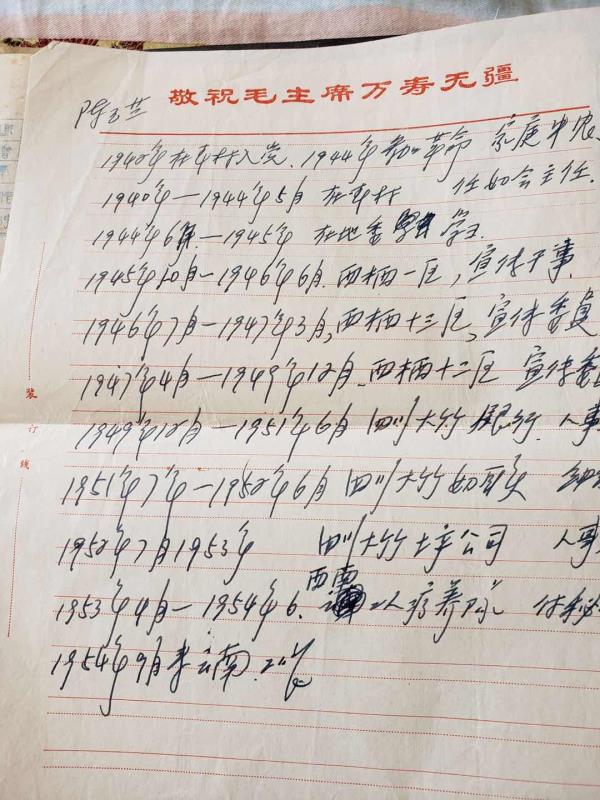 敬祝毛主席万寿无疆
陈玉兰
1940年在本村入党、1944年参加革命 家庭中农、
1940年—1944年5月 在本村 任妇会主任.
1944年6月—1945年 在地委 学习.
1945年10月—1946年6月. 西栖一区, 宣传干事.
1946年7月—1947年3月, 西栖十三区, 宣传委员
1947年4月—1949年12月. 西栖十二区 宣传委
1949年12月—1951年6月 四川大竹银行. 人事
1951年7年—1952年6月 四川大竹
1952年7月1953年 四川大竹土产公司 人事
1953年4月—1954年6. 西南 疗养院
1954年9月来云南.
装订线